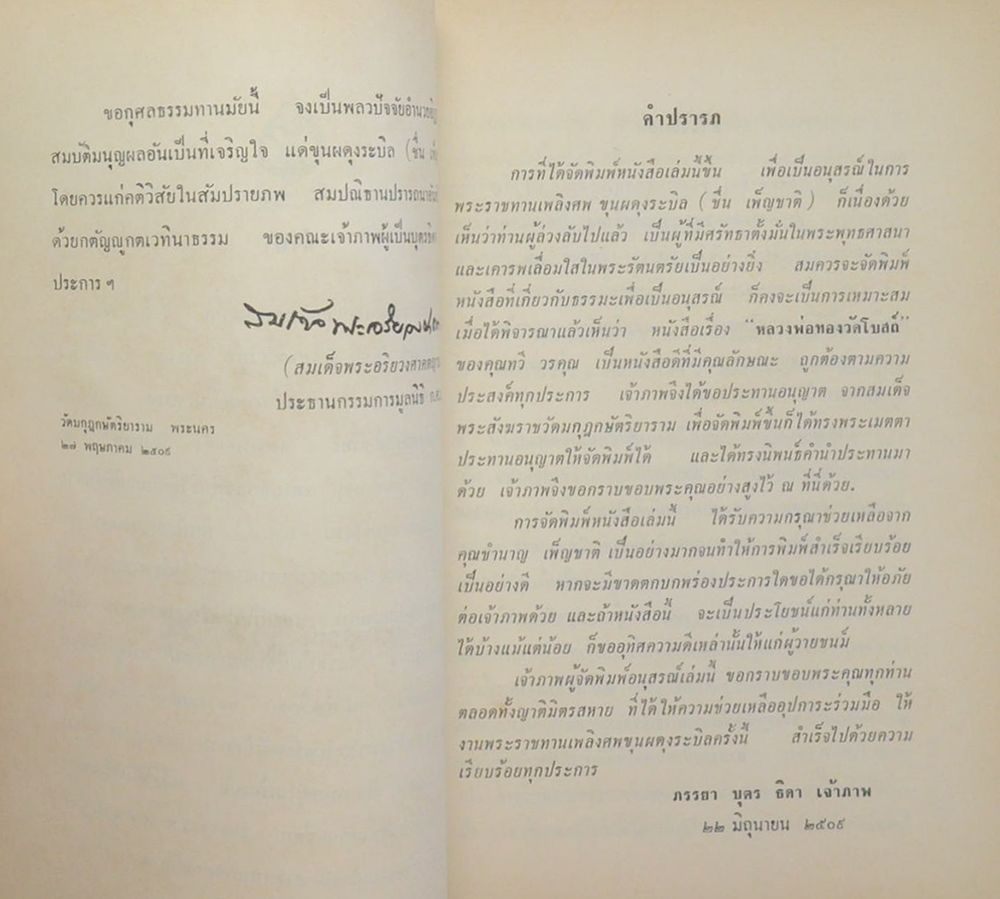 ขอกุศลธรรมทานมัยนี้ จงเป็นพลวปัจจัย
สมบัติมนุญผลอันเป็นที่เจริญใจ แด่ขุนผดุงระบิล (ชื่น
โดยควรแก่คติวิสัยในสัมปรายภพ สมปณิธานปรารถนา
ด้วยกตัญญูกตเวทีนาธรรม ของคณะเจ้าภาพผู้เป็นบุตร
ประการ ฯ
(สมเด็จพระอริยวงศาคต
ประธานกรรมการมูลนิธิ
วัดมกุฎกษัตริยาราม พระนคร
๒๗ พฤษภาคม ๒๕๐๙
คำปรารภ
การที่ได้จัดพิมพ์หนังสือเล่มนี้ขึ้น เพื่อเป็นอนุสรณ์ในการ
พระราชทานเพลิงศพ ขุนผดุงระบิล ( ชื่น เพ็ญชาติ ) ก็เนื่องด้วย
เห็นว่าท่านผู้ล่วงลับไปแล้ว เป็นผู้ที่มีศรัทธาตั้งมั่นในพระพุทธศาสนา
และเคารพเลื่อมใสในพระรัตนตรัยเป็นอย่างยิ่ง สมควรจะจัดพิมพ์
หนังสือที่เกี่ยวกับธรรมะเพื่อเป็นอนุสรณ์ ก็คงจะเป็นการเหมาะสม
เมื่อได้พิจารณาแล้วเห็นว่า หนังสือเรื่อง "หลวงพ่อทองวัดโบสถ์"
ของคุณทวี วรคุณ เป็นหนังสือดีที่มีคุณลักษณะ ถูกต้องตามความ
ประสงค์ทุกประการ เจ้าภาพจึงได้ขอประทานอนุญาต จากสมเด็จ
พระสังฆราชวัดมกุฎกษัตริยาราม เพื่อจัดพิมพ์ขึ้นก็ได้ทรงพระเมตตา
ประทานอนุญาตให้จัดพิมพ์ได้ และได้ทรงนิพนธ์คำนำประทานมา
ด้วย เจ้าภาพจึงขอกราบขอบพระคุณอย่างสูงไว้ ณ ที่นี้ด้วย.
การจัดพิมพ์หนังสือเล่มนี้ ได้รับความกรุณาช่วยเหลือจาก
คุณชำนาญ เพ็ญชาติ เป็นอย่างมากจนทำให้การพิมพ์สำเร็จเรียบร้อย
เป็นอย่างดี หากจะมีขาดตกบกพร่องประการใดขอได้กรุณาให้อภัย
ต่อเจ้าภาพด้วย และถ้าหนังสือนี้ จะเป็นประโยชน์แก่ท่านทั้งหลาย
ได้บ้างแม้แต่น้อย ก็ขออุทิศความดีเหล่านั้นให้แก่ผู้วายชนม์
เจ้าภาพผู้จัดพิมพ์อนุสรณ์เล่มนี้ ขอกราบขอบพระคุณทุกท่าน
ตลอดทั้งญาติมิตรสหาย ที่ได้ให้ความช่วยเหลืออุปการะร่วมมือ ให้
งานพระราชทานเพลิงศพขุนผดุงระบิลครั้งนี้ สำเร็จไปด้วยความ
เรียบร้อยทุกประการ
ภรรยา บุตร ธิดา เจ้าภาพ
๒๒ มิถุนายน ๒๕๐๙